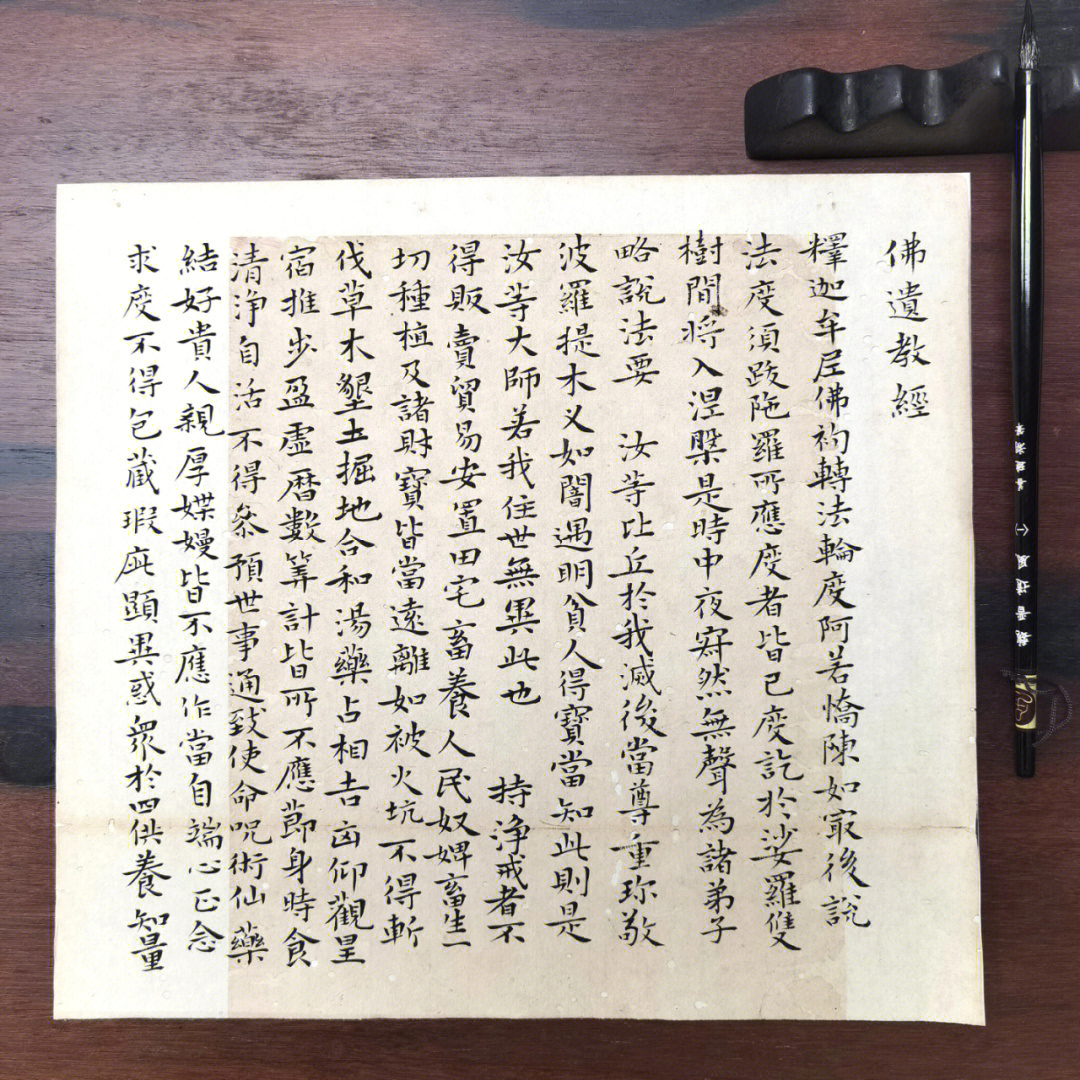 佛遺教經
釋迦牟尼佛初轉法輪度阿若憍陳如寂後說
法度須跋陁羅所應度者皆已度訖於娑羅雙
樹間將入涅槃是時中夜寂然無聲為諸弟子
略說法要 汝等比丘於我滅後當尊重珍敬
波羅提木义如闇遇明貧人得寶當知此則是
汝等大師若我住世無異此也 持淨戒者不
得販賣貿易安置田宅畜養人民奴婢畜生一
切種植及諸財寶皆當遠離如被火坑不得斬
伐草木墾土掘地合和湯藥占相吉凶仰觀星
宿推步盈虛曆數筭計皆所不應節身時食
清淨自活不得叅預世事通致使命呪術仙藥
結好貴人親厚媟嫚皆不應作當自端心正念
求度不得包藏瑕疵顯異惑眾於四供養知量
魏晉遺風